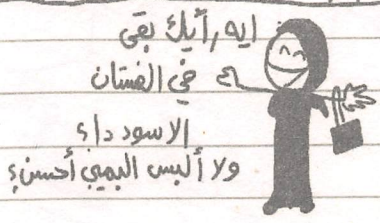 ايه رأيك بقى
في الفستان
الاسود دا؟
ولا ألبس البمبي أحسن؟